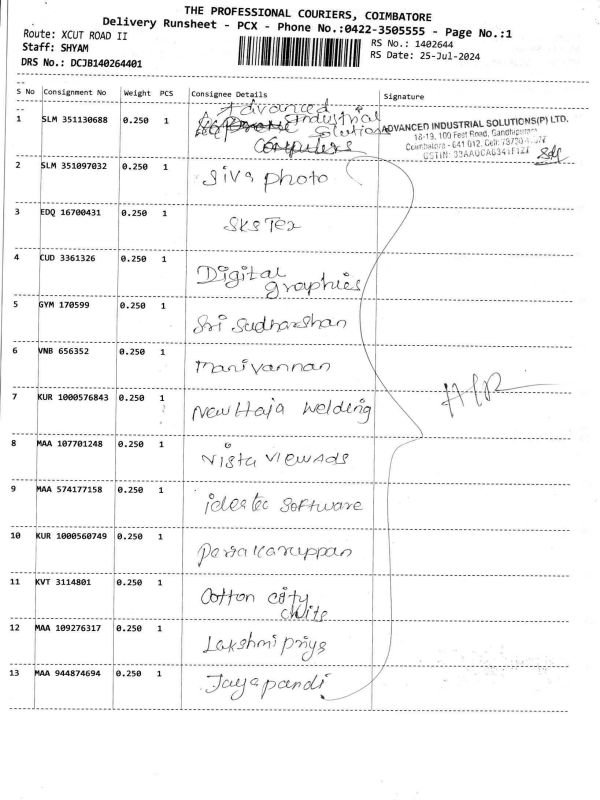 THE PROFESSIONAL COURIERS, COIMBATORE
Delivery Runsheet - PCX - Phone No.:0422-3505555 - Page No.:1
Route: XCUT ROAD II
RS No.: 1402644
Staff: SHYAM
RS Date: 25-Jul-2024
DRS No.: DCJB140264401
S No Consignment No Weight PCS Consignee Details Signature
1 SLM 351130688 0.250 1 Advanced Industrial Solutions
Computers
ADVANCED INDUSTRIAL SOLUTIONS(P) LTD.
18-19, 100 Feet Road, Gandhipuram
Coimbatore - 641 012, Cell:
GSTIN:
2 SLM 351097032 0.250 1 Siva photo
3 EDQ 16700431 0.250 1 SKS Tex
4 CUD 3361326 0.250 1 Digital
graphics
5 GYM 170599 0.250 1 Sri Sudharshan
6 VNB 656352 0.250 1 Manivannan
7 KUR 1000576843 0.250 1 New Haja Welding
8 MAA 107701248 0.250 1 Vista View Ads
9 MAA 574177158 0.250 1 software
10 KUR 1000560749 0.250 1 Periakaruppan
11 KVT 3114801 0.250 1 Cotton city
12 MAA 109276317 0.250 1 Lakshmi priya
13 MAA 944874694 0.250 1 Jayapandi